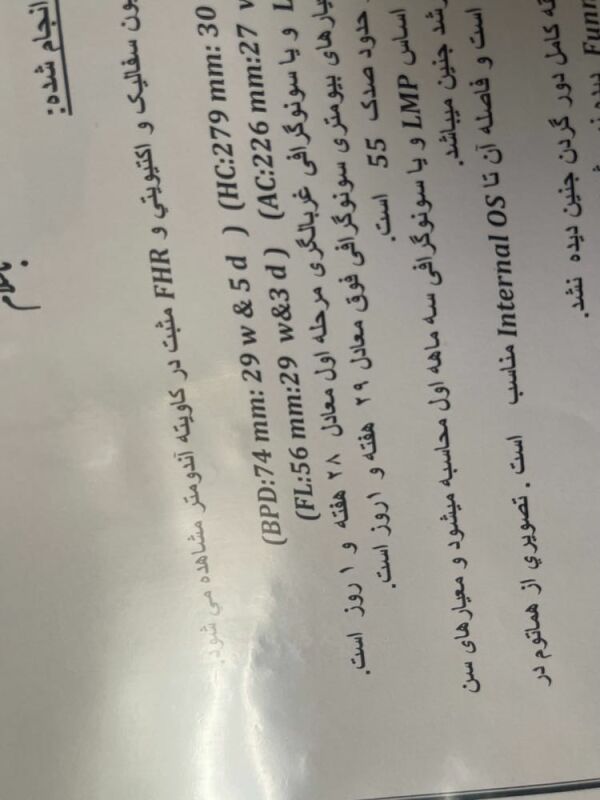 انجام شده:
با سلام
سفالیک و اکتیویتی و FHR مثبت در کاویته آندومتر مشاهده می شود.
(BPD:74 mm: 29 w & 5 d ) (HC:279 mm: 30
(FL:56 mm:29 w&3 d ) (AC:226 mm:27
و یا سونوگرافی غربالگری مرحله اول معادل ۲۸ هفته و ۱ روز است.
بیومتری سونوگرافی فوق معادل ۲۹ هفته و ۱ روز است.
حدود صدک 55 است.
اساس LMP و یا سونوگرافی سه ماهه اول محاسبه میشود و معیارهای سن
رشد جنین میباشد.
است و فاصله آن تا Internal OS مناسب است . تصویري از هماتوم در
کامل دور گردن جنین دیده نشد.